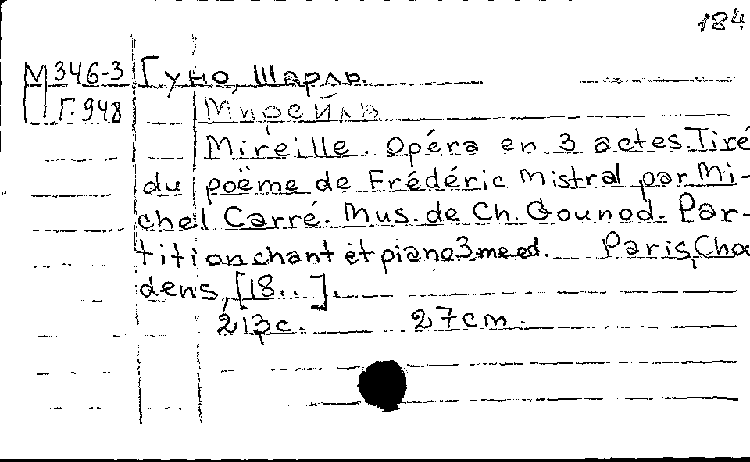 184
М 346-3 Гуно, Шарль.
Г. 948 Мирейль
Mireille. Opéra en 3 actes. Tiré
du poëme de Frédéric Mistral par Mi-
chel Carré. Mus. de Ch. Gounod. Par-
tition chant et piano 3me ed. Paris, Chou
dens, [18..].
213 с. 27 cm.